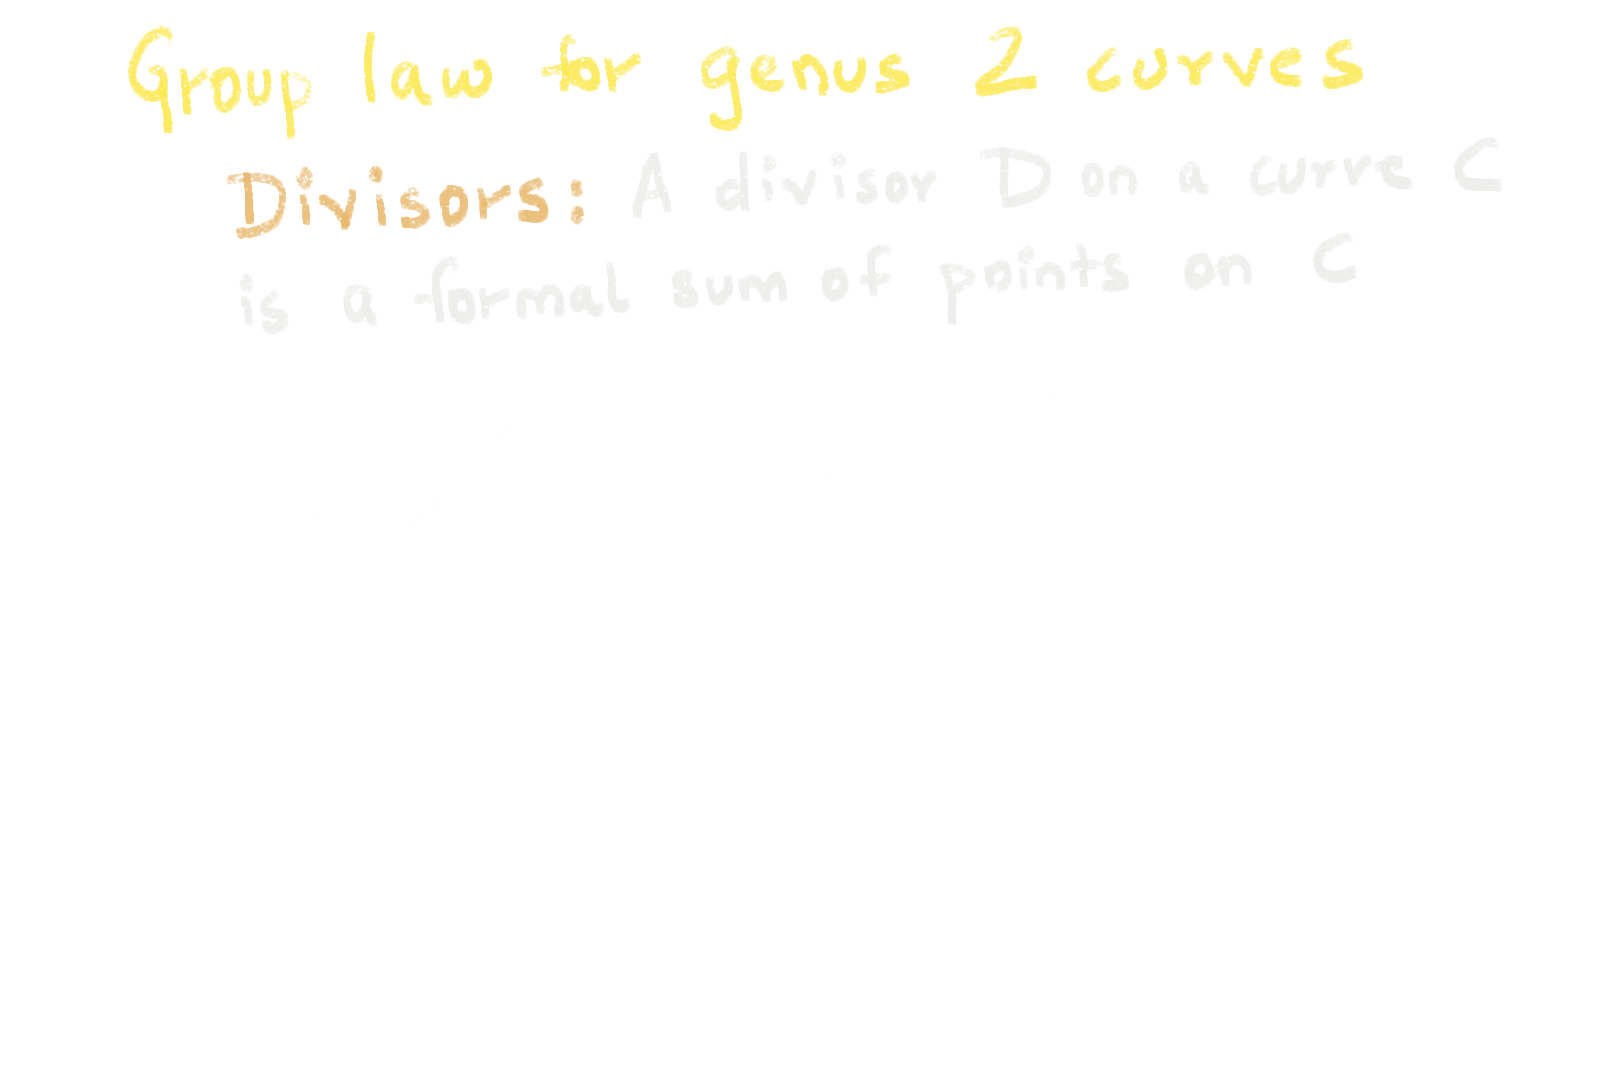 Group law for genus 2 curves
Divisors: A divisor D on a curve C
is a formal sum of points on C